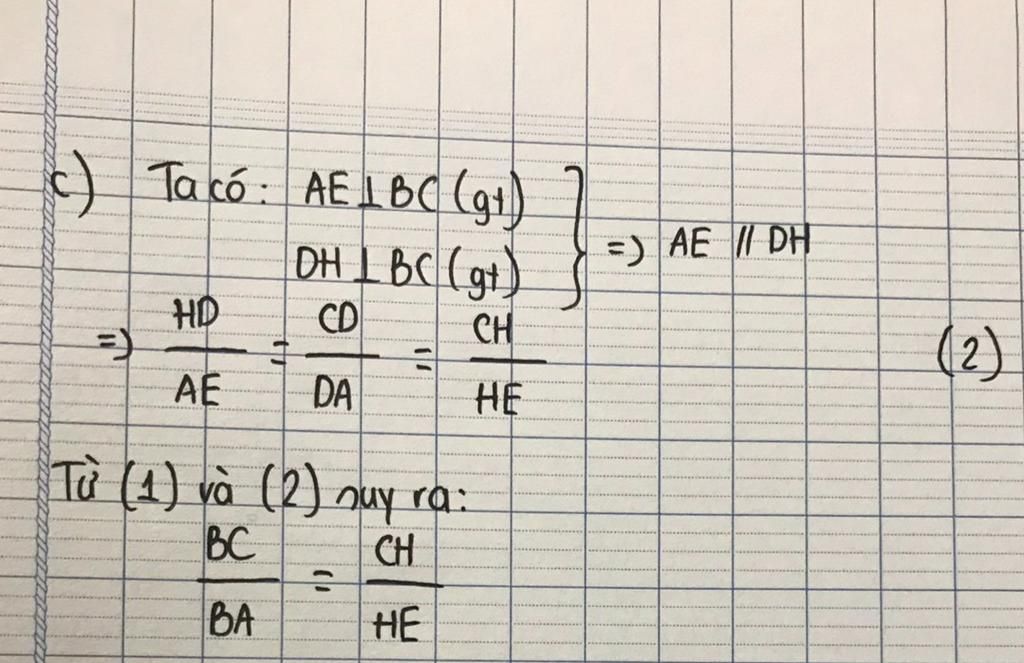 c) Ta có: AE⊥BC (gt)
DH⊥BC (gt) } => AE // DH
=> HD/AE = CD/DA = CH/HE (2)
Từ (1) và (2) suy ra:
BC/BA = CH/HE